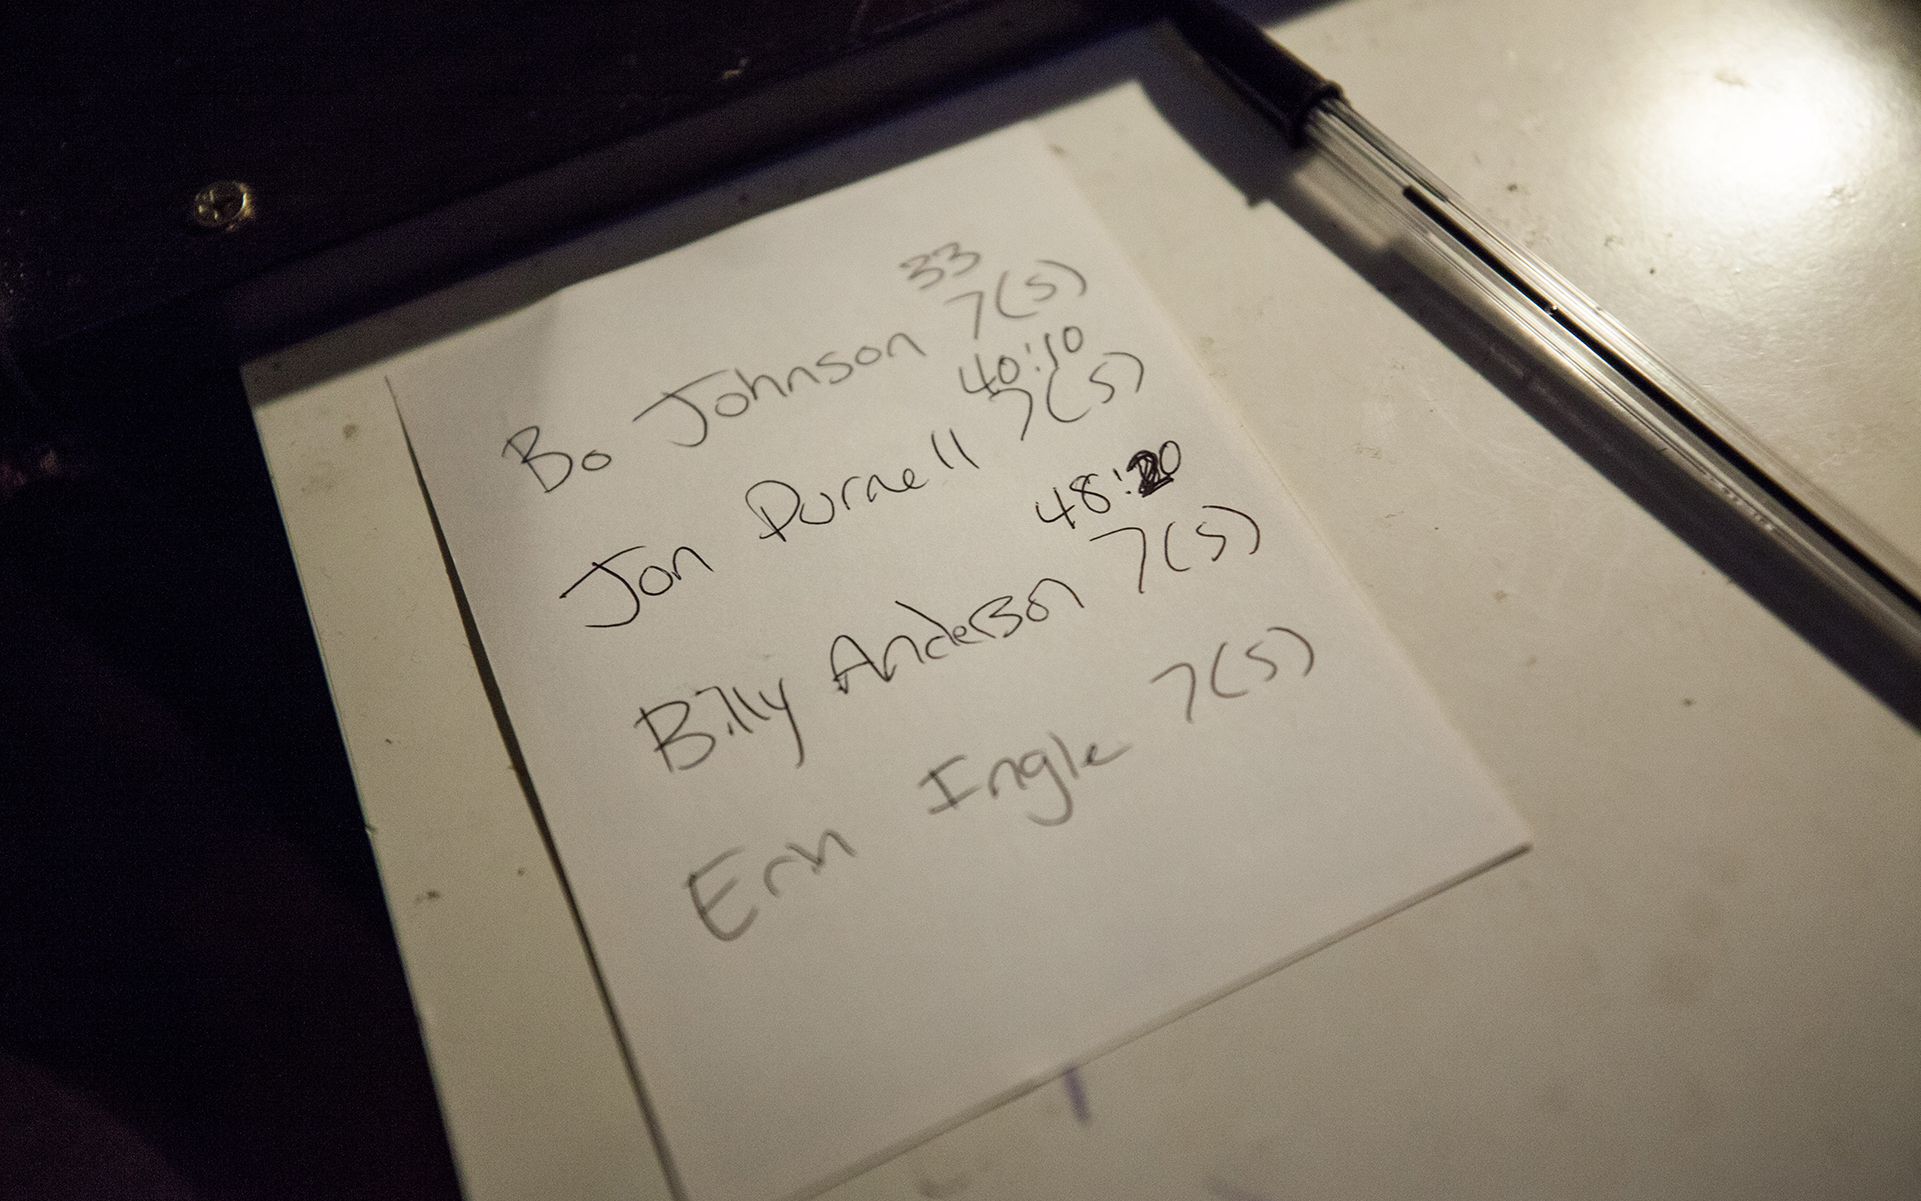 33
Bo Johnson 7(5)
40:10
Jon Purnell 7(5)
48:20
Billy Anderson 7(5)
Erin Ingle 7(5)